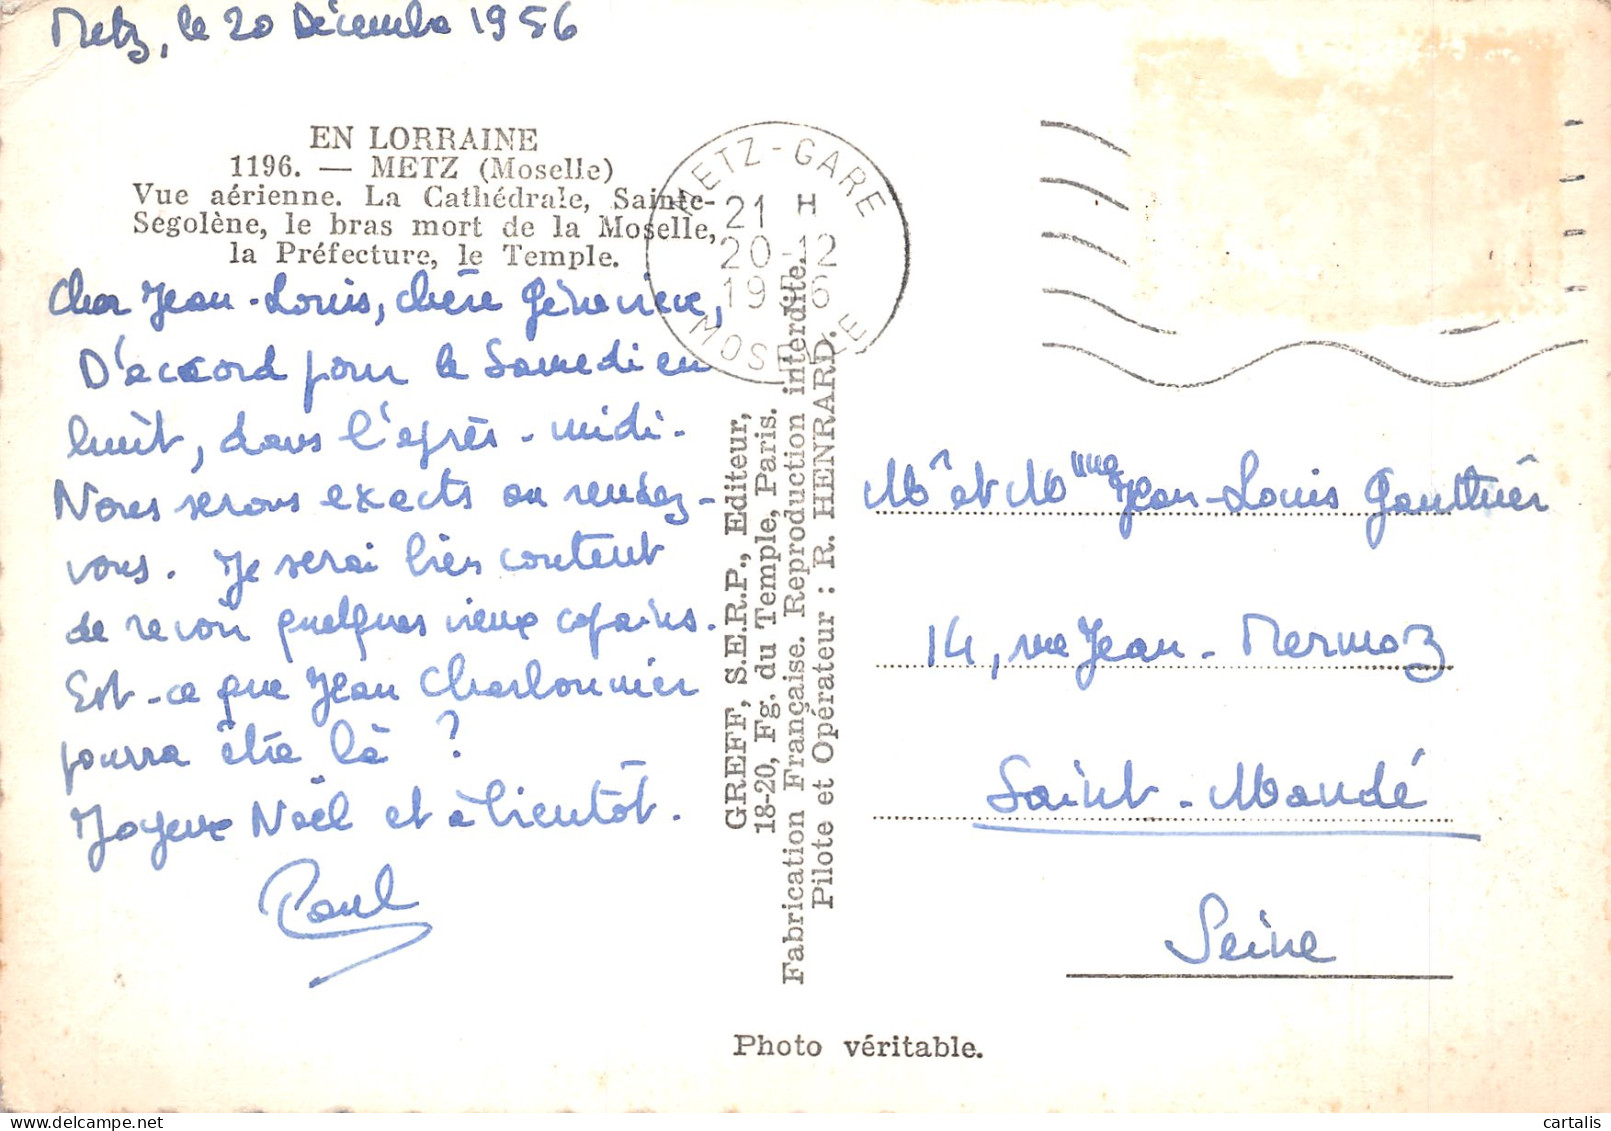 Metz, le 20 Décembre 1956
EN LORRAINE
1196. — METZ (Moselle)
Vue aérienne. La Cathédrale, Sainte-
Segolène, le bras mort de la Moselle,
la Préfecture, le Temple.
Cher Jean-Louis, chère Geneviève,
D'accord pour le Samedi en
huit, dans l'après-midi.
Nous serons exacts au rendez-
vous. Je serai bien content
de revoir quelques vieux copains.
Est-ce que Jean Charbonnier
pourra être là ?
Joyeux Noël et à bientôt.
Paul
METZ-GARE
21 H
20-12
1956
MOSELLE
GREFF, S.E.R.P., Editeur,
18-20, Fg. du Temple, Paris.
Fabrication Française. Reproduction interdite.
Pilote et Opérateur : R. HENRARD.
Mr et Mme Jean-Louis Gauthier
14, rue Jean-Mermoz
Saint-Mandé
Seine
Photo véritable.
cartalis